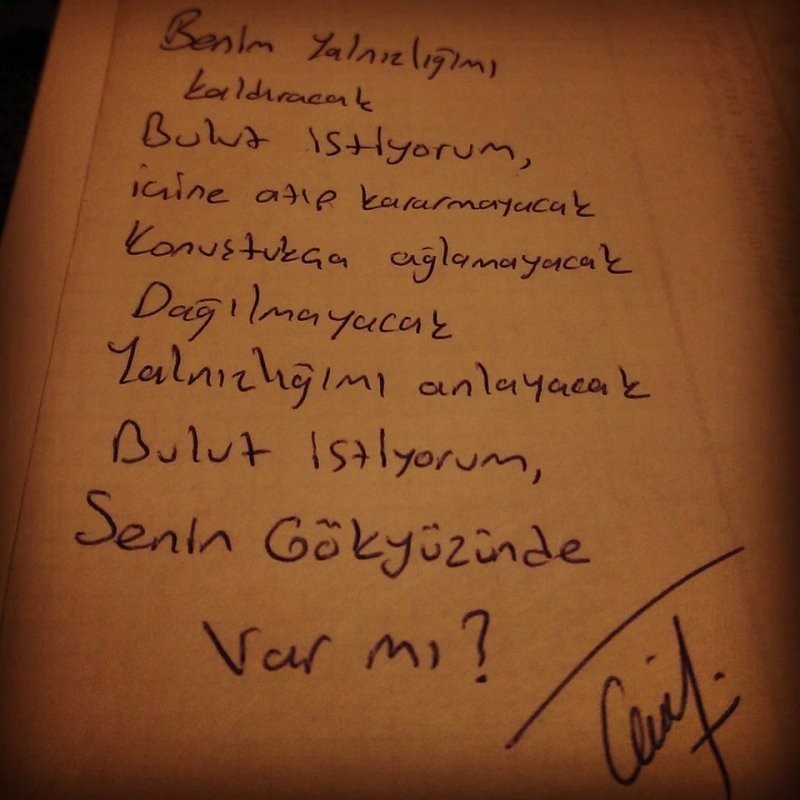 Benim Yalnızlığımı
kaldıracak
Bulut istiyorum,
içine atıp kararmayacak
Konuştukça ağlamayacak
Dağılmayacak
Yalnızlığımı anlayacak
Bulut istiyorum,
Senin Gökyüzünde
Var mı?